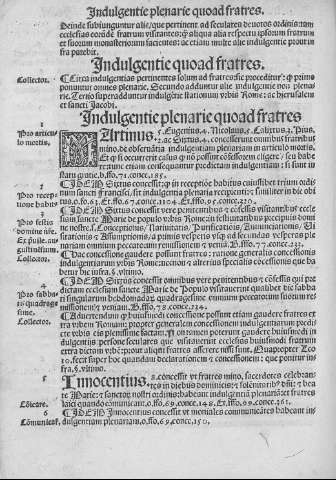 Indulgentie plenarie quoad fratres.
Deinde subiunguntur alie, que pertinent ad seculares deuotos ordinis
ecclesias eorūdē fratrum visitantes: aliqua alia respectu ipsorum fratrum
et suorum monasteriorum facientes: ac etiam multe alie indulgentie prout in-
fra patebit.
Indulgentie quoad fratres.
Collector.
Circa indulgentias pertinentes solum ad fratres: sic proceditur: primo
ponuntur omnes plenarie. Secundo adduntur alie indulgentie non plena-
rie. Tertio superadduntur indulgētie stationum vrbis Rome: Hierusalem
et sancti Jacobi.
Indulgentie plenarie quoad fratres
1
Pro articu-
lo mortis.
Martinus. 5. Eugenius. 4. Nicolaus. 5. Calixtus. 3. Pius.
2. ac Sixtus. 4. concesserunt omnibus fratribus
mino. de obseruātia indulgentiam plenariam in articulo mortis.
Et si occurrerit casus nō possint cōfessorem eligere: seu habe-
re: tunc etiam consequantur predictam indulgentiam: si sunt in
statu gratie. ffo. 71. conce. 185.
2
Pro recep-
tione habitꝰ
IDEM Sixtus concessit: in receptione habitus cuiuslibet trium ordi-
num sancti Francisci. sit indulgentia plenaria recipienti: similiter in
3
Pro festis
domine nr̄e.
IDEM Sixtus concessit vere penitentibus cōfessis visitantibus eccle-
siam sancte Marie de populo vrbis Rome: in festiuitatibus precipuis domi-
ne nostre. s. Conceptionis, Natiuitatis, Purificationis, Annunciationis, Vi-
sitationis Assumptionis: a primis vesperis vsq; ad secundas vesperas ple-
nariam omnium peccatorum remissionem veniam. ffo. 77. conce. 231.
Collector.
Hac concessione gaudere possunt fratres: ratione generalis concessionis
indulgentiarum vrbis Rome: necnon alterius specialis cōcessionis que ha-
betur hic infra. §. vltimo.
4
Pro sabba-
tis quadrage-
sime.
IDEM Sixtus concessit omnibus vere penitentibus cōfessis qui pre-
dictam ecclesiam sancte Marie de Populo visitauerint qualibet die sabba-
ti singularum hebdomadarū quadragesime omnium peccatorum suorum re-
missionem veniam. ffo. 78. conce. 234.
Collector.
Aduertendum huiusmodi concessione possunt etiam gaudere fratres ex-
tra vrbem Romam: propter generalem concessionem indulgentiarum predi-
cte vrbis
indulgentiis persone seculares que visitauerint ecclesias huiusmodi fratrum
extra dictam vrbē: prout aliqui fratres asserere nisi sunt. Quapropter
10. fecit super hoc quandam declarationem concessionem: que ponitur in-
fra. §. vltimo.
5
INnocentius. 8. concessit vt fratres mino. sacerdotes celebran-
tes in diebus dominicis: solēnitatib' beate
Marie: sanctoꝝ nostri ordinis: habeant indulgentiā plenariā: fratres
Cōicare.
laici quando cōmunicant. ffo. 69. conce. 148. Et. ffo. 69. conce. 261.
6
Cōmunicāt.
IDEM Innocentius concessit vt moniales communicātes habeant in-
dulgentiam plenariam. ffo. 69. conce. 150.